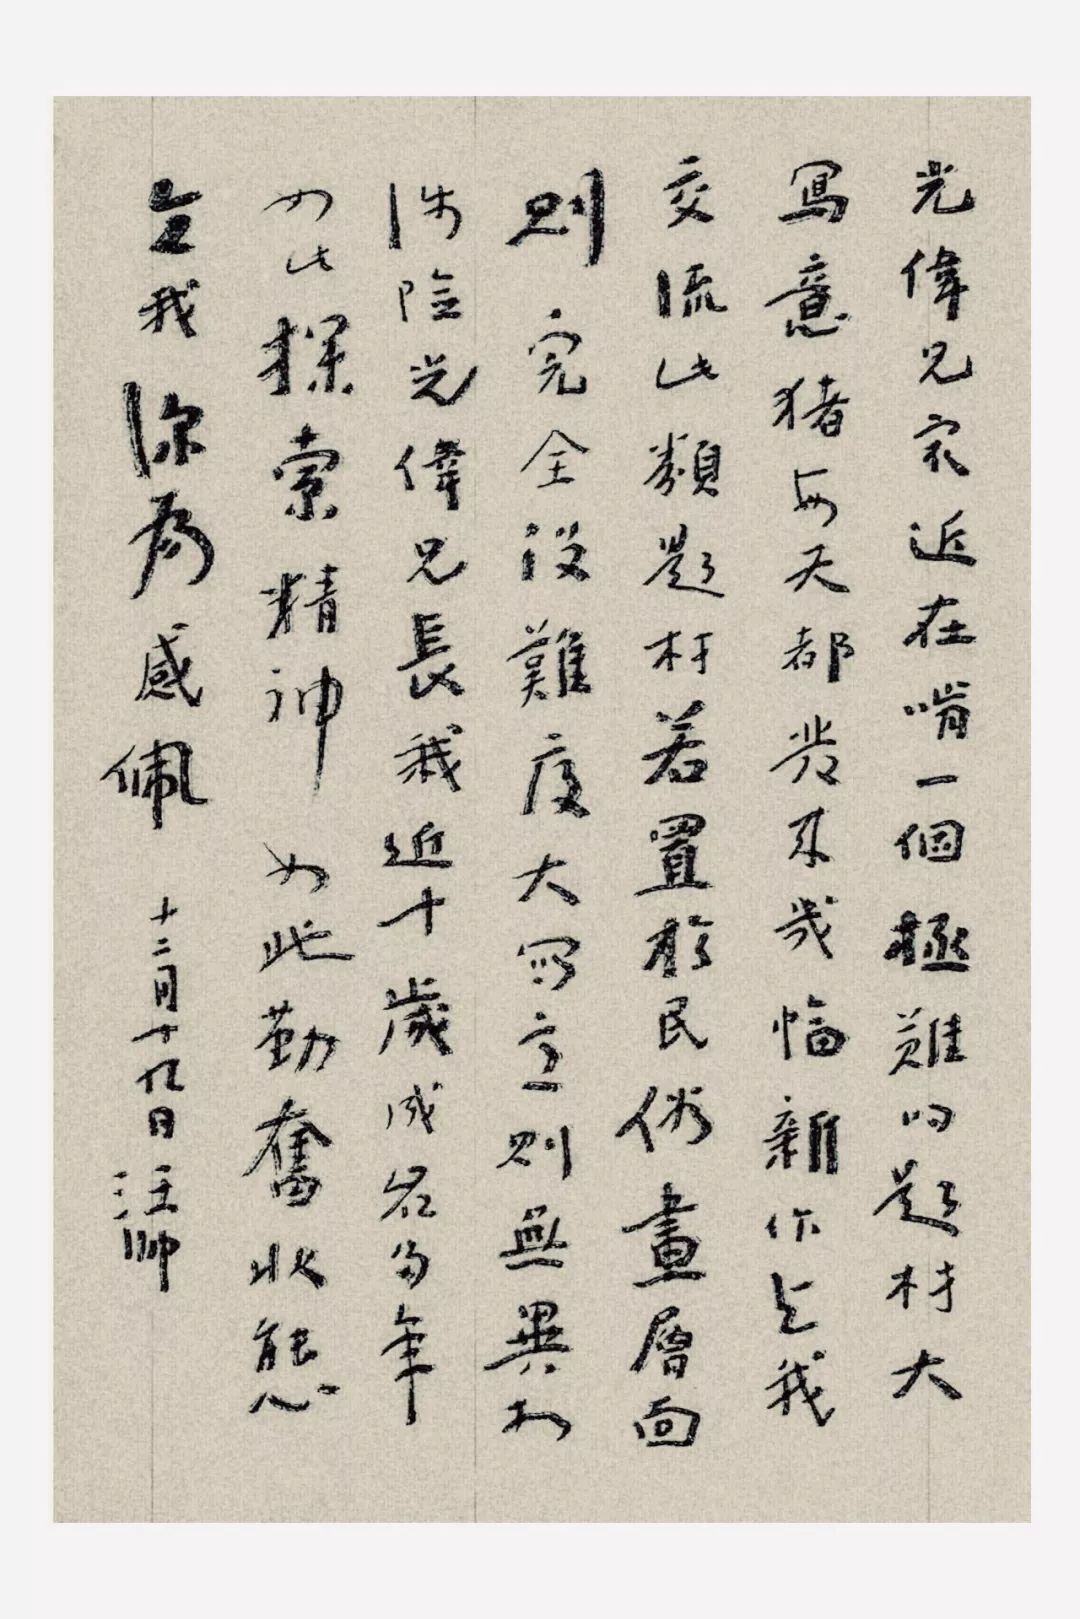 光偉兄最近在啃一個極難的題材大
寫意猪每天都發來幾幅新作与我
交流此類題材若置於民俗畫層面
則完全没難度大写意則無異於
涉險光偉兄長我近十歲成名多年
如此探索精神如此勤奮狀態
令我深為感佩
十二月十九日汪帅